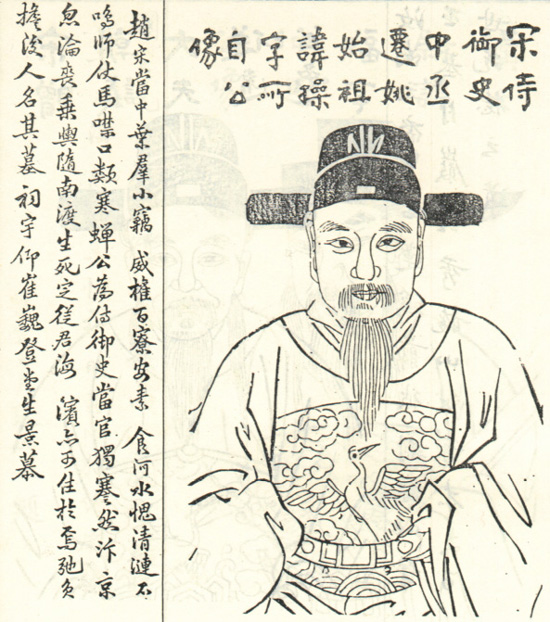 宋侍
御史
中丞
遷姚
始祖
諱操
字所
自公
像
趙宋當中葉羣小竊 威權百寮安素 食河水愧清漣不
鳴師仗馬噤口類寒蟬公為侍御史當官獨謇然汴京
忽淪喪乘輿隨南渡生死定從君海 濱亦可住於焉弛負
擔後人名其墓 祠宇仰崔巍登堂生景慕